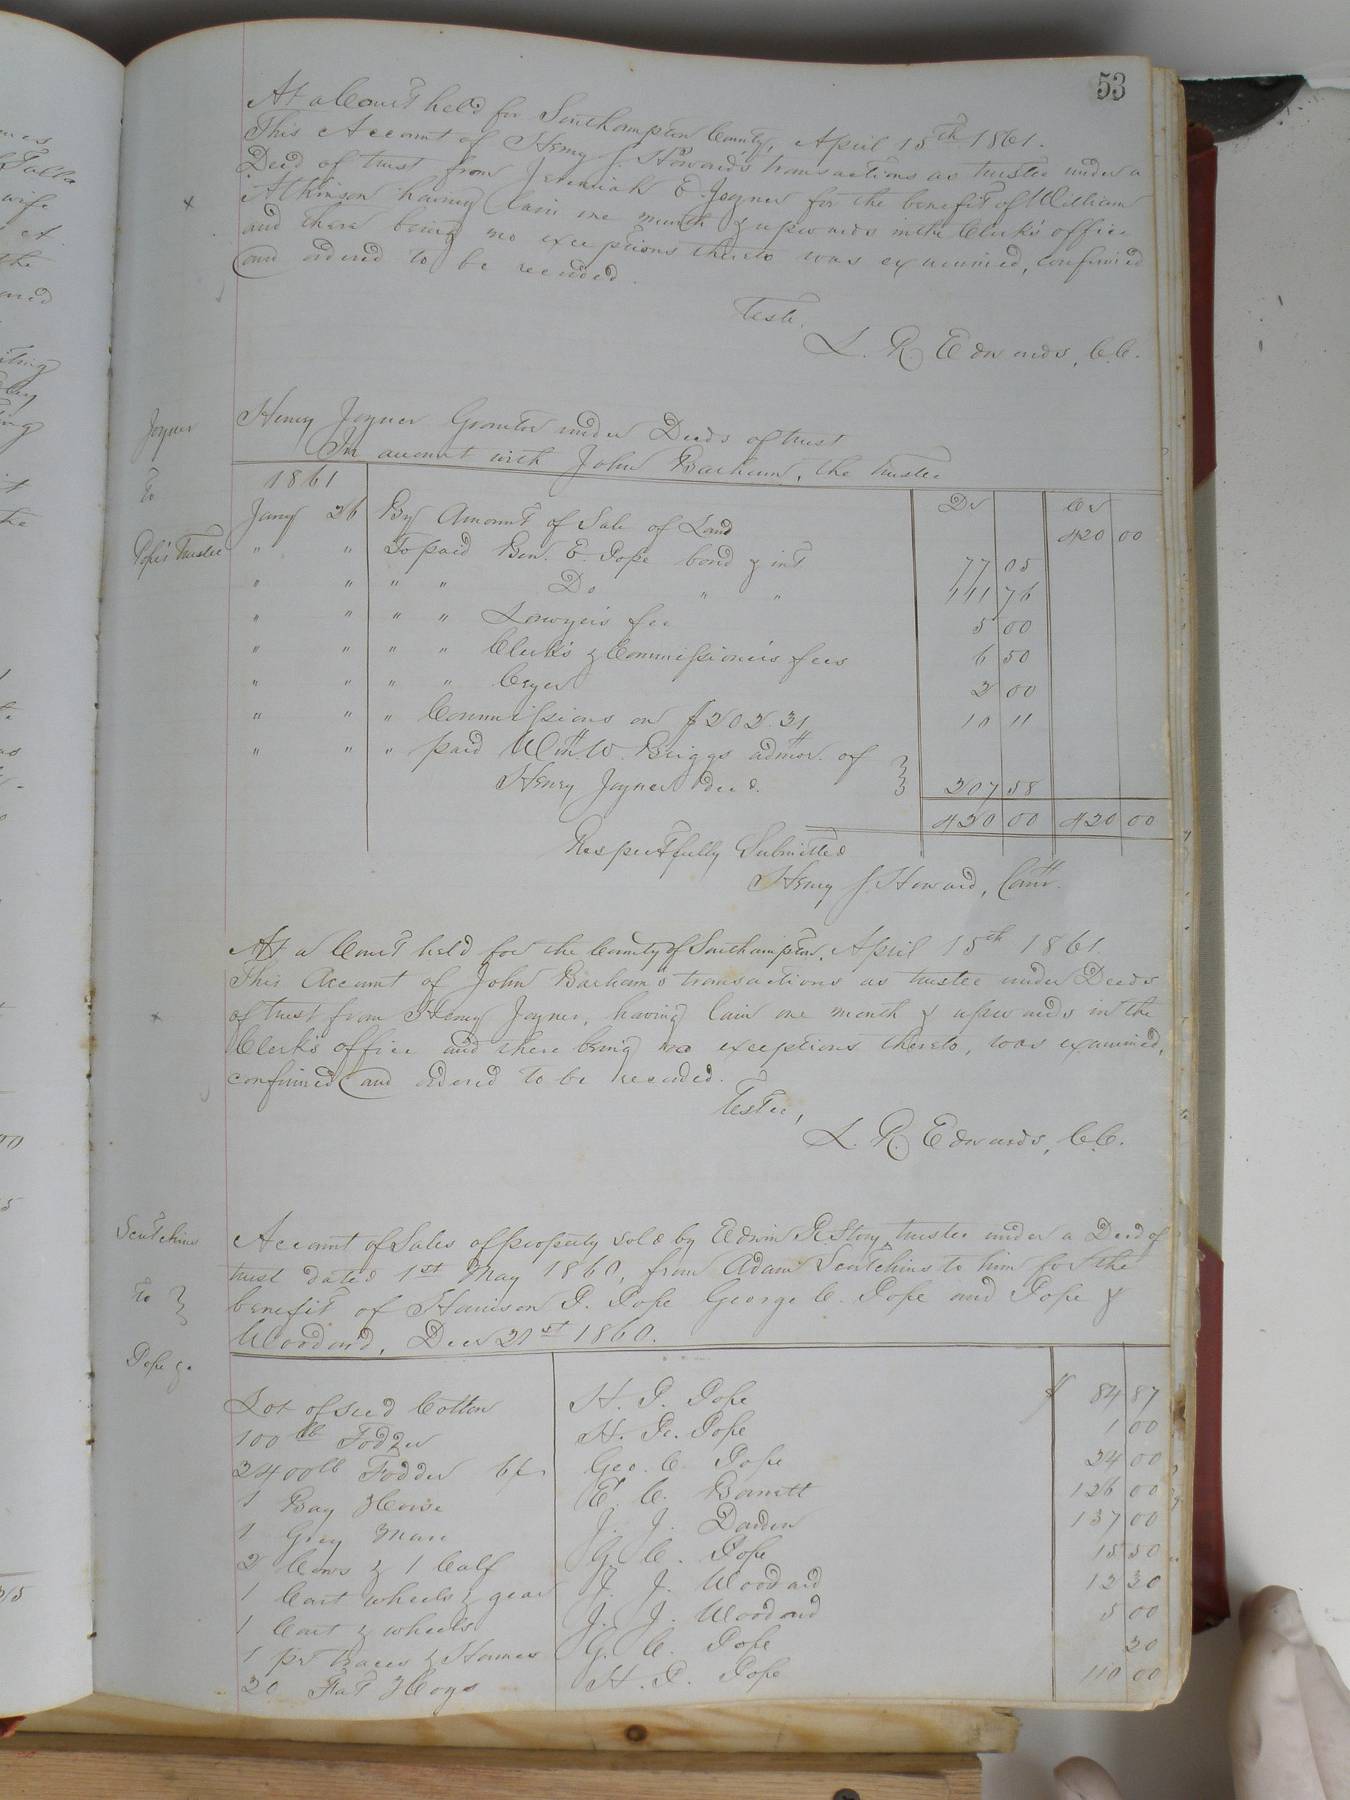 53
At a Court held for Southampton County, April 15th 1861.
This Account of Henry J. Howard's transactions as trustee under a
Deed of trust from Jeremiah E. Joyner for the benefit of William
Atkinson having lain one month & upwards in the Clerk's office
and there being no exceptions thereto was examined, confirmed
and ordered to be recorded.
Teste,
L. R. Edwards, C.C.
Joyner
To
Pope's Trustee
Henry Joyner Grantor under Deeds of trust
In account with John Barham, the trustee
1861 Dr Cr
Jany 26 By Amount of Sale of Land 420 00
" " To paid Ben. E. Pope bond & int 77 05
" " " " Do " " 111 76
" " " " Lawyer's fee 5 00
" " " " Clerk's & Commissioner's fees 6 50
" " " " Cryer 2 00
" " " Commissions on $202.31 10 11
" " " paid Wm. W. Briggs admor. of
Henry Joyner decd. 207 58
420 00 420 00
Respectfully Submitted
Henry J. Howard, Comr.
At a Court held for the County of Southampton, April 15th 1861
This Account of John Barham's transactions as trustee under Deeds
of trust from Henry Joyner, having lain one month & upwards in the
Clerk's office and there being no exceptions thereto, was examined,
confirmed and ordered to be recorded.
Teste,
L. R. Edwards, C.C.
Scutchins
To
Pope &c
Account of Sales of property sold by Edwin R. Story, trustee under a Deed of
trust dated 1st May 1860, from Adam Scutchins to him for the
benefit of Harrison P. Pope George C. Pope and Pope &
Woodard, Decr 21st 1860.
Lot of seed Cotton H. P. Pope $ 84 87
100 lb Fodder H. P. Pope 1 00
2400 lb Fodder Geo. C. Pope 24 00
1 Bay Horse E. C. Barrett 126 00
1 Grey Mare J. J. Darden 137 00
2 Cows & 1 Calf G. C. Pope 15 50
1 Cart wheels & gear J. J. Woodard 12 20
1 Cart & wheels J. J. Woodard 5 00
1 pr traces & Hames G. C. Pope 20
20 Fat Hogs H. P. Pope 110 00